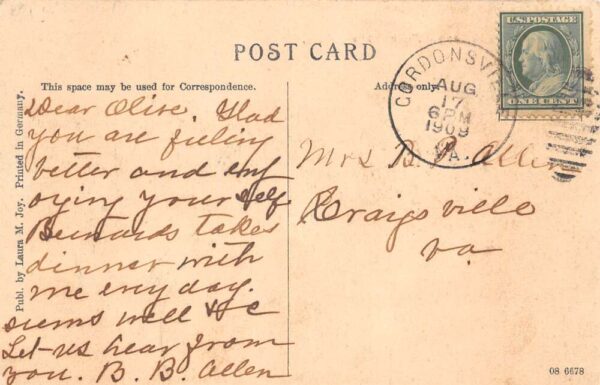 POST CARD
This space may be used for Correspondence.
Address only.
Dear Olive. Glad
you are feeling
better and enj
oying your self
Bernards takes
dinner with
me evry day.
seems well &c
Let us hear from
you. B. B. Allen
Mrs B. B. Allen
Craigsville
va
GORDONSVI
AUG
17
6 PM
1909
VA.
U.S. POSTAGE
ONE CENT
Publ. by Laura M. Joy. Printed in Germany.
08 6678